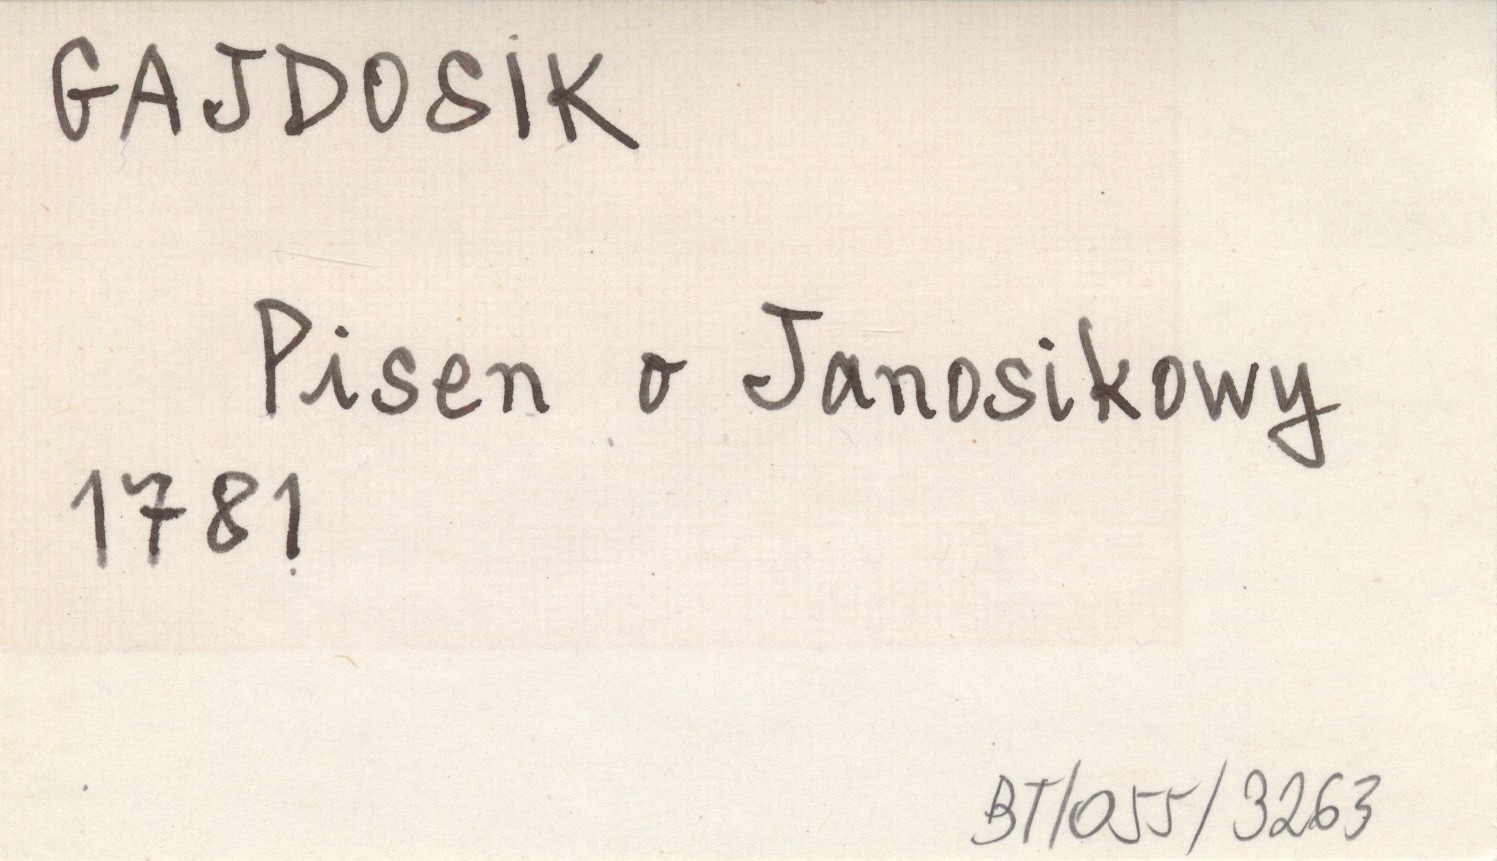 GAJDOSIK
Pisen o Janosikowy
1781
BT/055/3263